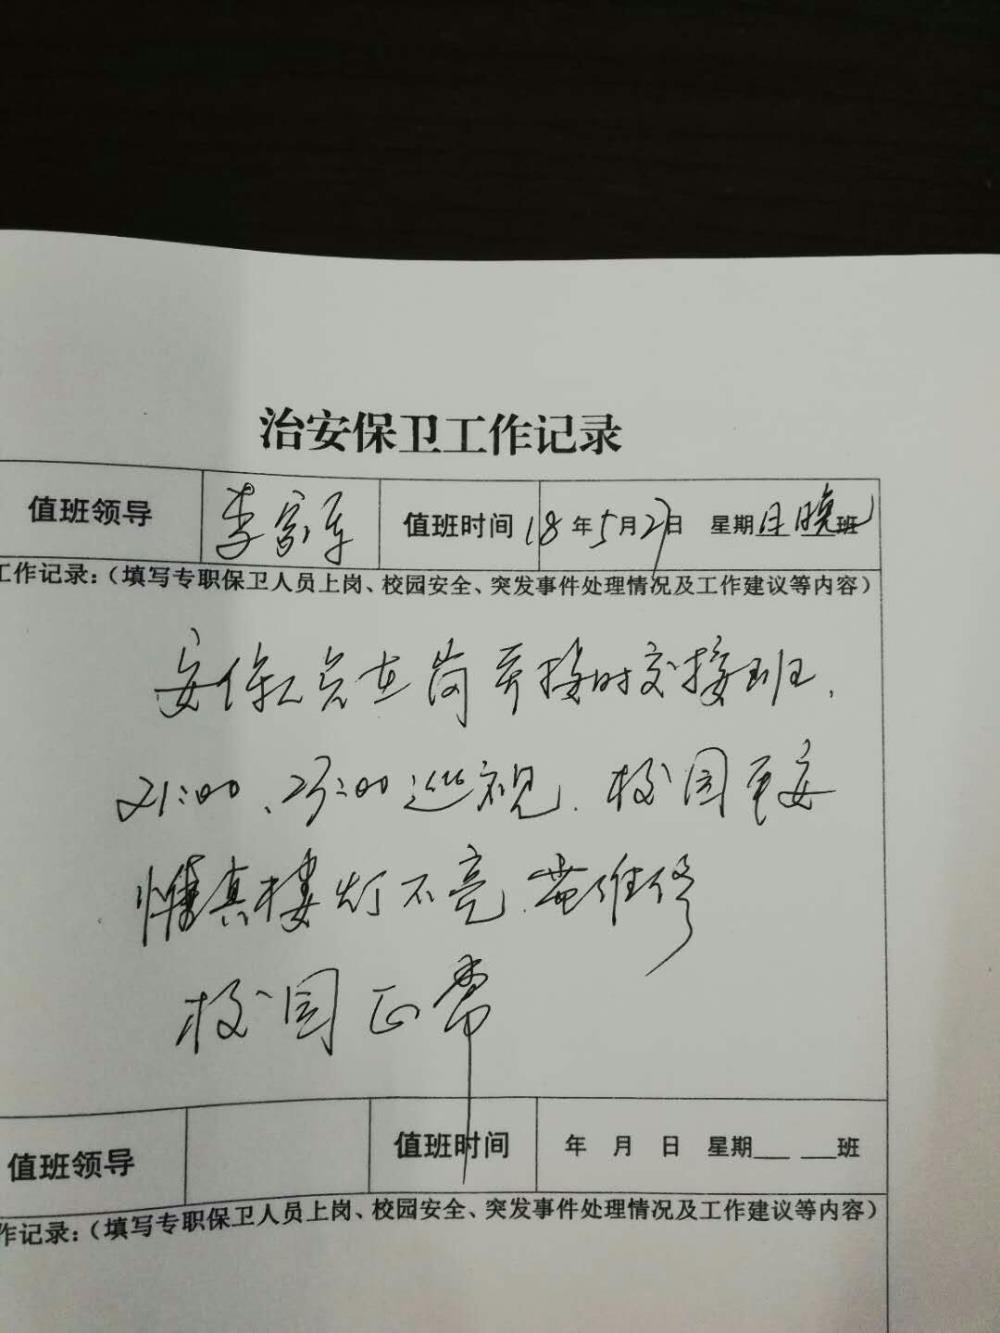 治安保卫工作记录
值班领导 李家军 值班时间 18年5月27日 星期日 晚班
工作记录：（填写专职保卫人员上岗、校园安全、突发事件处理情况及工作建议等内容）
安保人员在岗并按时交接班，
21:00、23:00巡视，校园平安
惟真楼灯不亮，需维修
校园正常
值班领导 值班时间 年 月 日 星期___ ___班
作记录：（填写专职保卫人员上岗、校园安全、突发事件处理情况及工作建议等内容）